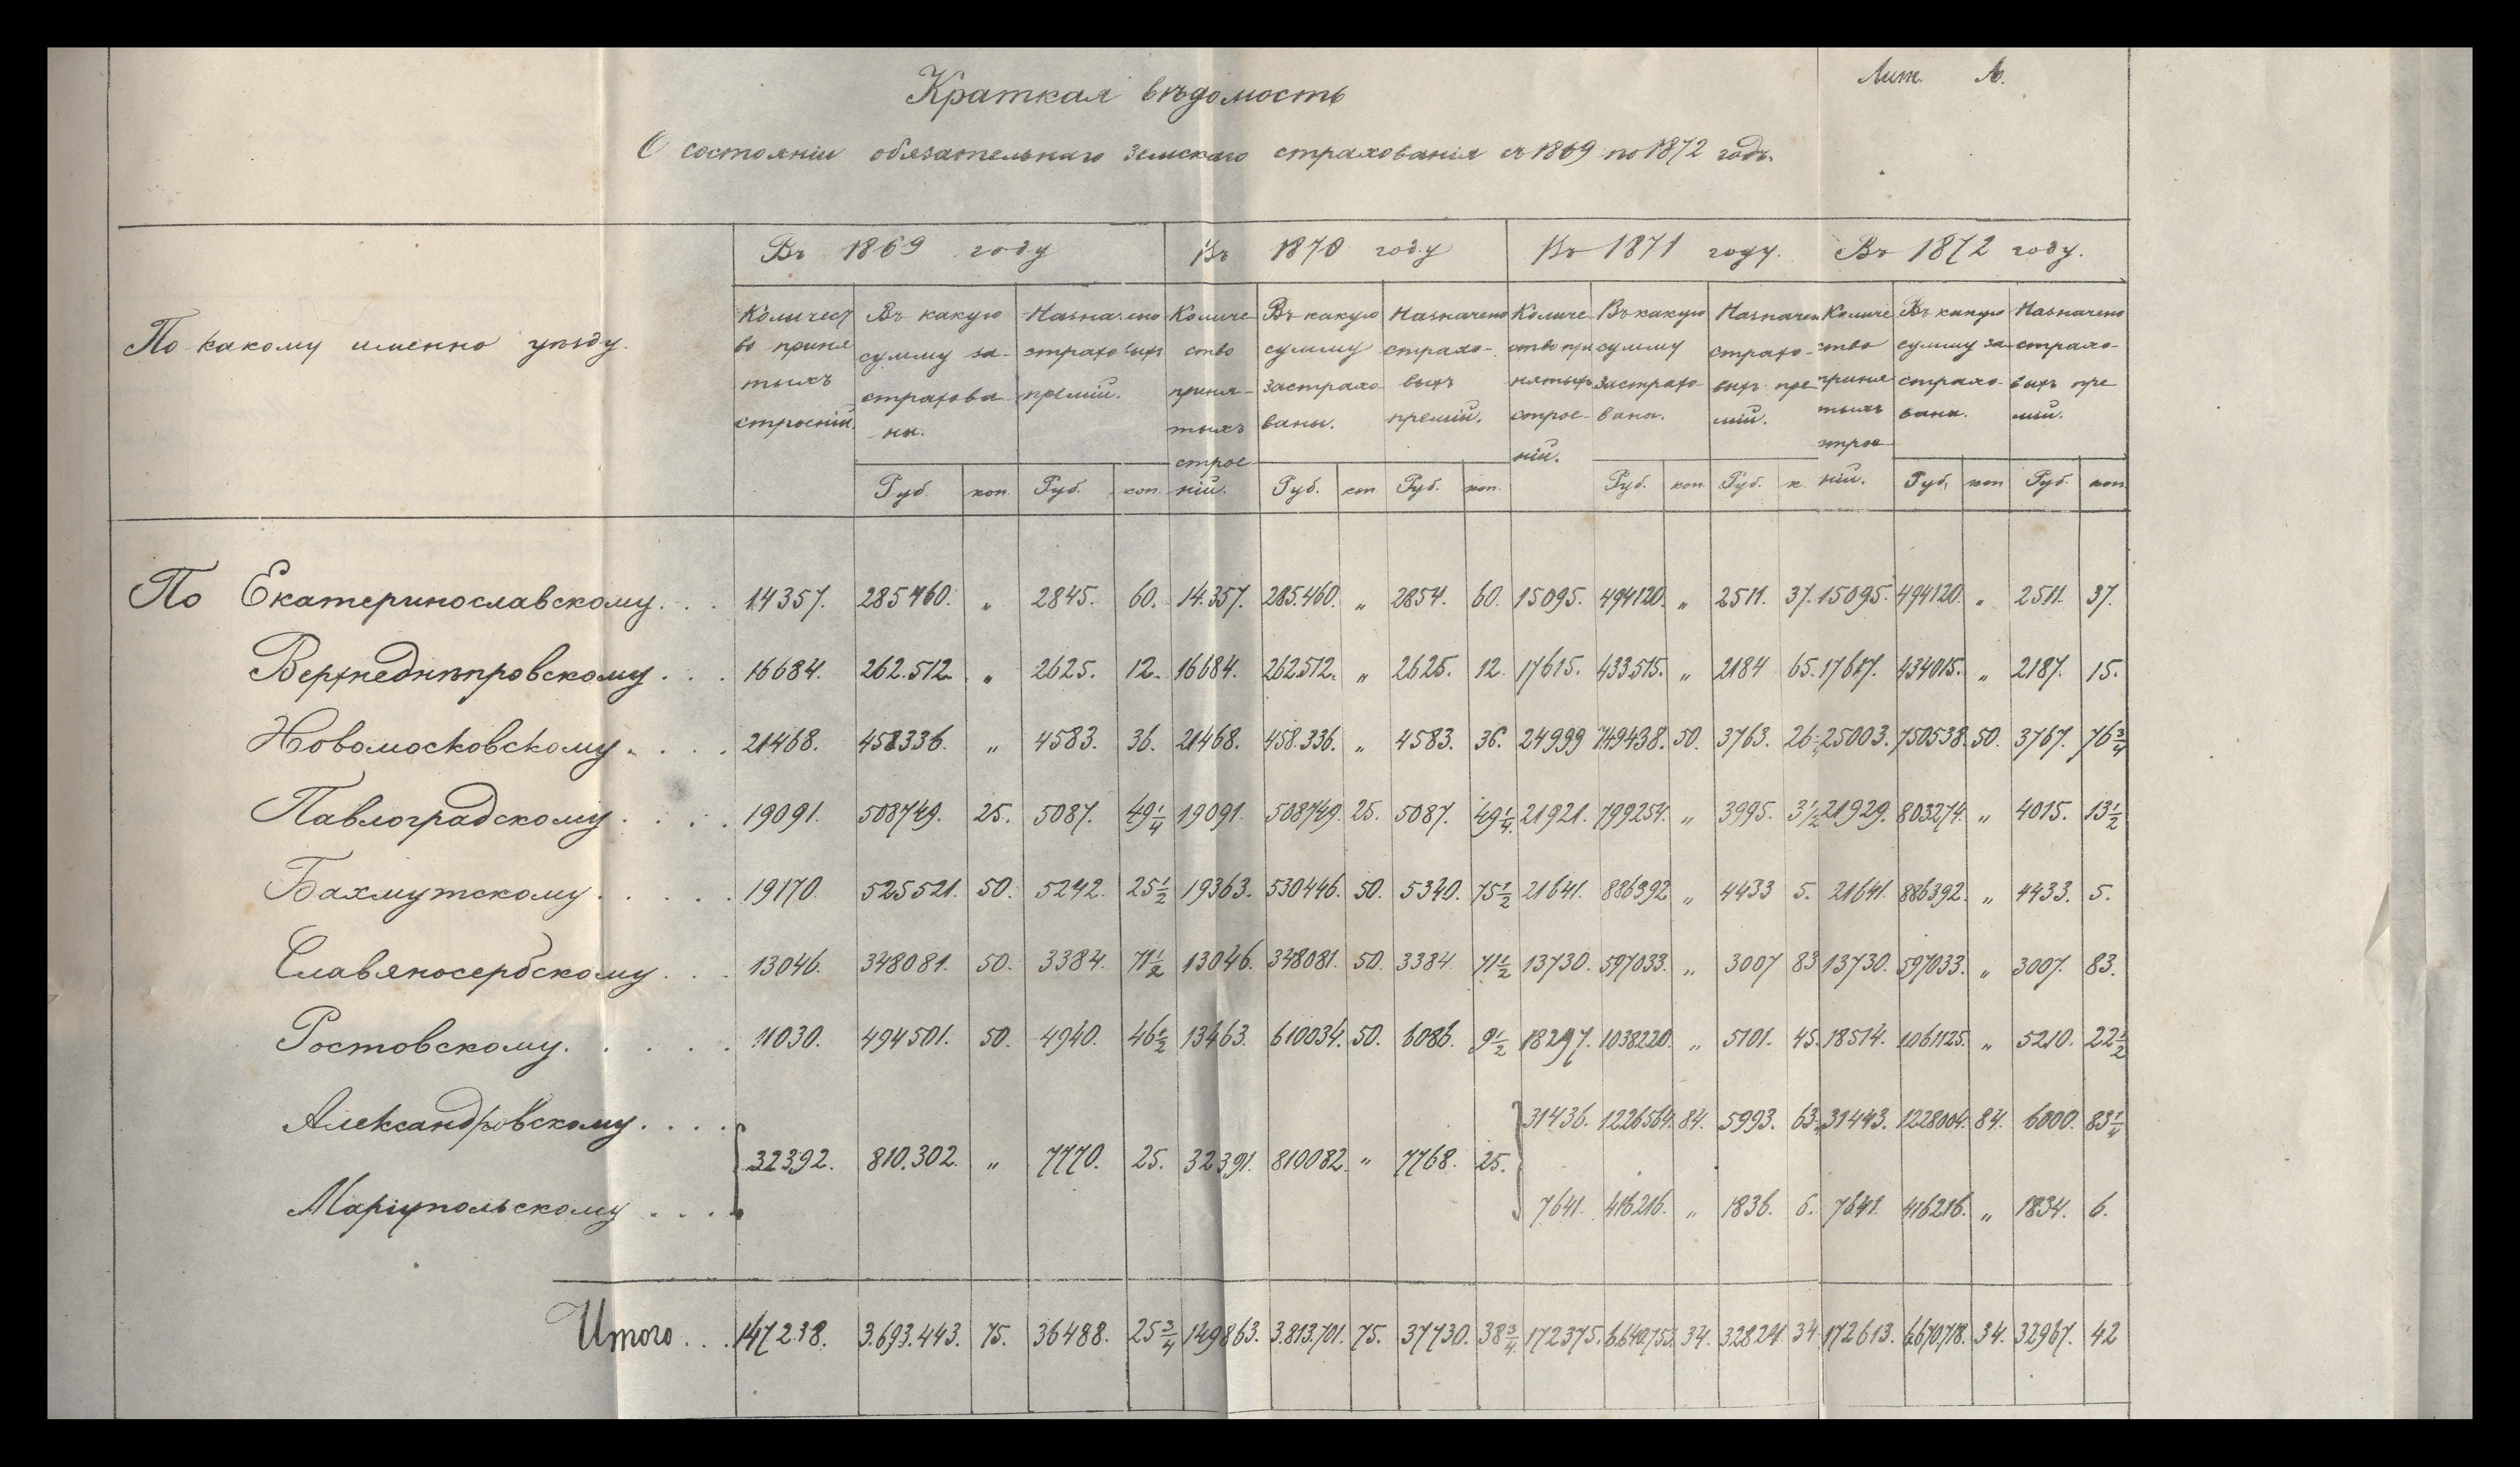 Лит. А.
Краткая вѣдомость
О состояніи обязательнаго земскаго страхованія съ 1869 по 1872 годъ.
Въ 1869 году Въ 1870 году Въ 1871 году. Въ 1872 году.
По какому именно уѣзду.
Количест во приня тыхъ строеній. Въ какую сумму за- страхова ны. Назначено страховыхъ премій. Количе ство приня- тыхъ строе- ній. Въ какую сумму застрахо- ваны. Назначено страхо- выхъ премій. Количе ство при нятыхъ строе- ній. Въ какую сумму застрахо вана. Назначен страхо- выхъ пре мій. Количе ство приня тыхъ строе- ній. Въ какую сумму за- страхо- вана. Назначено страхо- выхъ пре мій.
Руб. коп. Руб. коп. Руб. коп Руб. коп. Руб. коп Руб. к. Руб. коп Руб. коп
По Екатеринославскому. . . 14357. 285460. „ 2845. 60. 14.357. 285.460. „ 2854. 60. 15095. 494120. „ 2511. 37. 15095. 494120. „ 2511. 37.
Верхнеднѣпровскому. . . 16684. 262.512. „ 2625. 12. 16684. 262512. „ 2625. 12. 17615. 433.515. „ 2184 65. 17617. 434015. „ 2187. 15.
Новомосковскому. . . . 21468. 458336. „ 4583. 36. 21468. 458.336. „ 4583. 36. 24999 749438. 50. 3763. 26 25003. 750538. 50. 3767. 76 3/4
Павлоградскому. . . . 19091. 508749. 25. 5087. 49 1/4 19091. 508749. 25. 5087. 49 1/4. 21921. 799254. „ 3995. 3 1/2 21929. 803274. „ 4015. 13 1/2
Бахмутскому. . . . . 19170. 525521. 50. 5242. 25 1/2 19363. 530446. 50. 5340. 75 1/2 21641. 886392 „ 4433 5. 21641. 886392. „ 4433. 5.
Славяносербскому. . . 13046. 348081. 50. 3384. 71 1/2 13046. 348081. 50. 3384 71 1/2 13730. 597033. „ 3007 83 13730. 597033. „ 3007. 83.
Ростовскому. . . . . 11030. 494501. 50. 4940. 46 1/2 13463. 610034. 50. 6086. 9 1/2 18297. 1038220. „ 5101. 45. 18514. 1.061125. „ 5210. 22 1/2
Александровскому. . . . 31436. 1226564. 84. 5993. 63 31443. 1228004. 84. 6000. 83 1/4
32392. 810.302. „ 7770. 25. 32391. 810082. „ 7768. 25.
Маріупольскому . . . . 7641. 416216. „ 1836. 6. 7641. 416216. „ 1834. 6.
Итого. . . 147238. 3.693.443. 75. 36488. 25 3/4 149863. 3.813.701. 75. 37730. 38 3/4. 172375. 6.640.753. 34. 32824 34 172613. 6.670.718. 34. 32967. 42